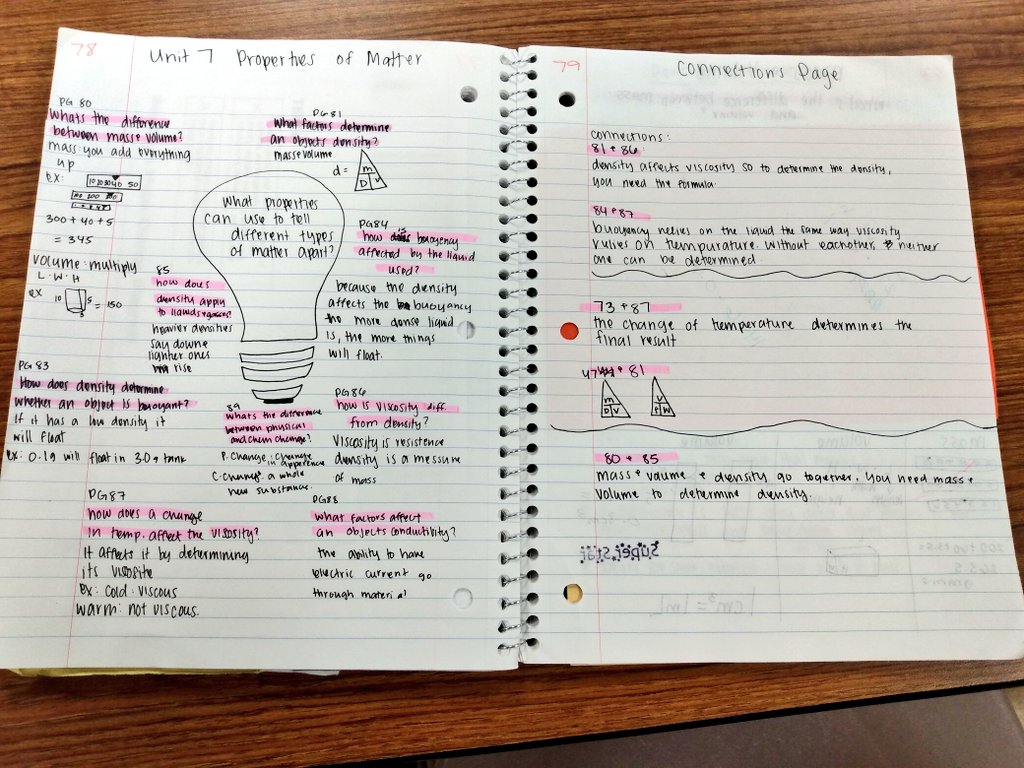 78
Unit 7 Properties of Matter
PG 80
Whats the difference
between mass + volume?
mass: you add everything
up
ex:
300 + 40 + 5
= 345
volume: multiply
L · W · H
ex 10 5 3 = 150
PG 81
What factors determine
an objects density?
mass + volume
d =
m
D V
What properties
can you use to tell
different types
of matter apart?
PG 84
how is buoyency
affected by the liquid
used?
because the density
affects the buoyancy
the more dense liquid
is, the more things
will float.
85
how does
density apply
to liquids + gasses?
heavier densities
say downe
lighter ones
rise
PG 83
How does density determine
whether an object is buoyant?
If it has a low density it
will float
ex: 0.1g will float in 3.0g tank
89
Whats the difference
between physical
and chem change?
P. Change: Change
in apperence
C. Change: a whole
new substance.
PG 86
how is viscosity diff.
from density?
Viscosity is resistence
density is a messure
of mass
PG 87
how does a change
in temp. affect the viscosity?
It affects it by determining
its
ex: cold: viscous
warm: not viscous.
PG 88
What factors affect
an objects conductivity?
the ability to have
electric current go
through material
79
Connections Page
connections:
81 + 86
density affects viscosity so to determine the density,
you need the formula.
84 + 87
buoyancy relies on the liquid the same way viscosity
relies on tempurature. Without eachother, neither
one can be determined.
73 + 87
the change of temperature determines the
final result
47 + 81
m
D V
80 + 85
mass + volume + density go together. you need mass +
volume to determine density.
Super Star
1 cm³ = 1 mL